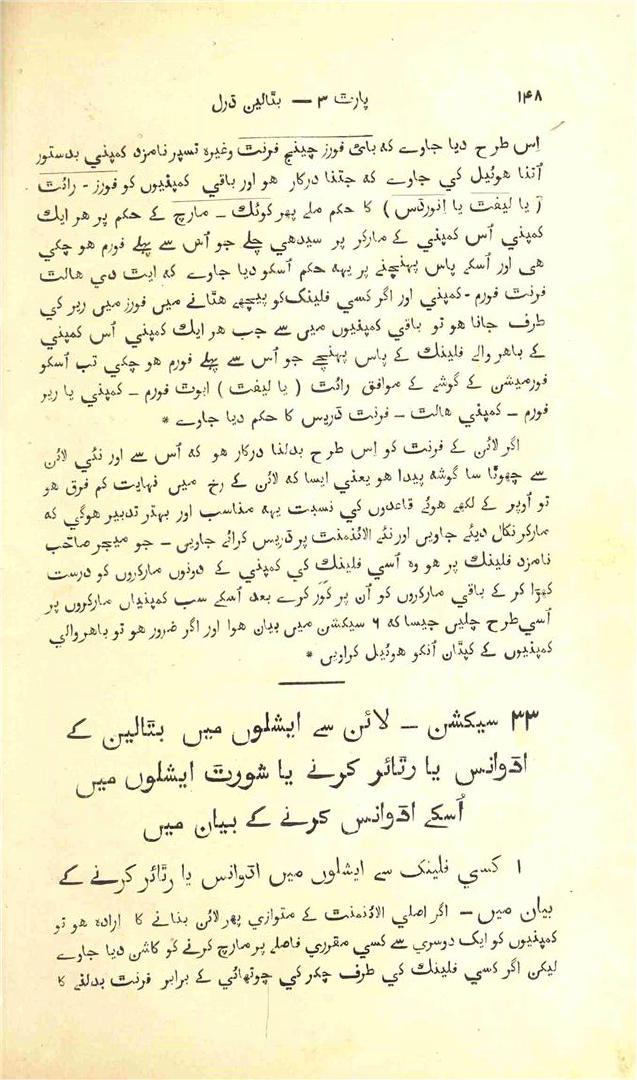 ۱۴۸
پارٹ ۳ — بٹالین ڈرل
اِس طرح دیا جاوے کہ بائ فورز چینج فرنٹ وغیرہ تسپر نامزد کمپني بدستور
اُتنا هوئیل کي جاوے کہ جتنا درکار هو اور باقي کمپنیوں کو فورز - رائٹ
( یا لیفٹ یا اِنورڈس ) کا حکم ملے پھر کوئک - مارچ کے حکم پر هر ایك
کمپني اُس کمپني کے مارکر پر سیدهي چلے جو اُس سے پہلے فورم هو چکي
هی اور اُسکے پاس پہنچنے پر یہہ حکم اُسکو دیا جاوے کہ ایٹ دي هالٹ
فرنٹ فورم - کمپني اور اگر کسي فلینك کو پیچهے هٹانے میں فورز میں ریر کي
طرف جانا هو تو باقي کمپنیوں میں سے جب هر ایك کمپني اُس کمپني
کے باهر والے فلینك کے پاس پہنچے جو اُس سے پہلے فورم هو چکي تب اُسکو
فورمیشن کے گوشے کے موافق رائٹ ( یا لیفٹ ) ابوٹ فورم - کمپني یا ریر
فورم - کمپني هالٹ - فرنٹ ڈریس کا حکم دیا جاوے *
اگر لائن کے فرنٹ کو اِس طرح بدلنا درکار هو کہ اُس سے اور نئي لائن
سے چهوٹا سا گوشہ پیدا هو یعني ایسا کہ لائن کے رخ میں نہایت کم فرق هو
تو اُوپر کے لکهے هوئے قاعدوں کي نسبت یہہ مناسب اور بہتر تدبیر هوگي کہ
مارکر نکال دیئے جاویں اور نئے الائنمنٹ پر ڈریس کرائے جاویں - جو میجر صاحب
نامزد فلینك پر هو وہ اُسي فلینك کي کمپني کے دونوں مارکروں کو درست
کهڑا کر کے باقي مارکروں کو اُن پر کَوَر کرے بعد اُسکے سب کمپنیاں مارکروں پر
اُسي طرح چلیں جیسا کہ ۶ سیکشن میں بیان هوا اور اگر ضرور هو تو باهر والي
کمپنیوں کے کپٹان اُنکو هوئیل کراویں *
۳۳ سیکشن - لائن سے ایشلوں میں بٹالین کے
اڈوانس یا رٹائر کرنے یا شورٹ ایشلوں میں
اُسکے اڈوانس کرنے کے بیان میں
۱ کسي فلینك سے ایشلوں میں اڈوانس یا رٹائر کرنے کے
بیان میں - اگر اصلي الائنمنٹ کے متوازي پهر لائن بنانے کا ارادہ هو تو
کمپنیوں کو ایک دوسري سے کسي مقرري فاصلے پر مارچ کرنے کو کاشن دیا جاوے
لیکن اگر کسي فلینك کي طرف چکر کي چوتهائي کے برابر فرنٹ بدلنے کا